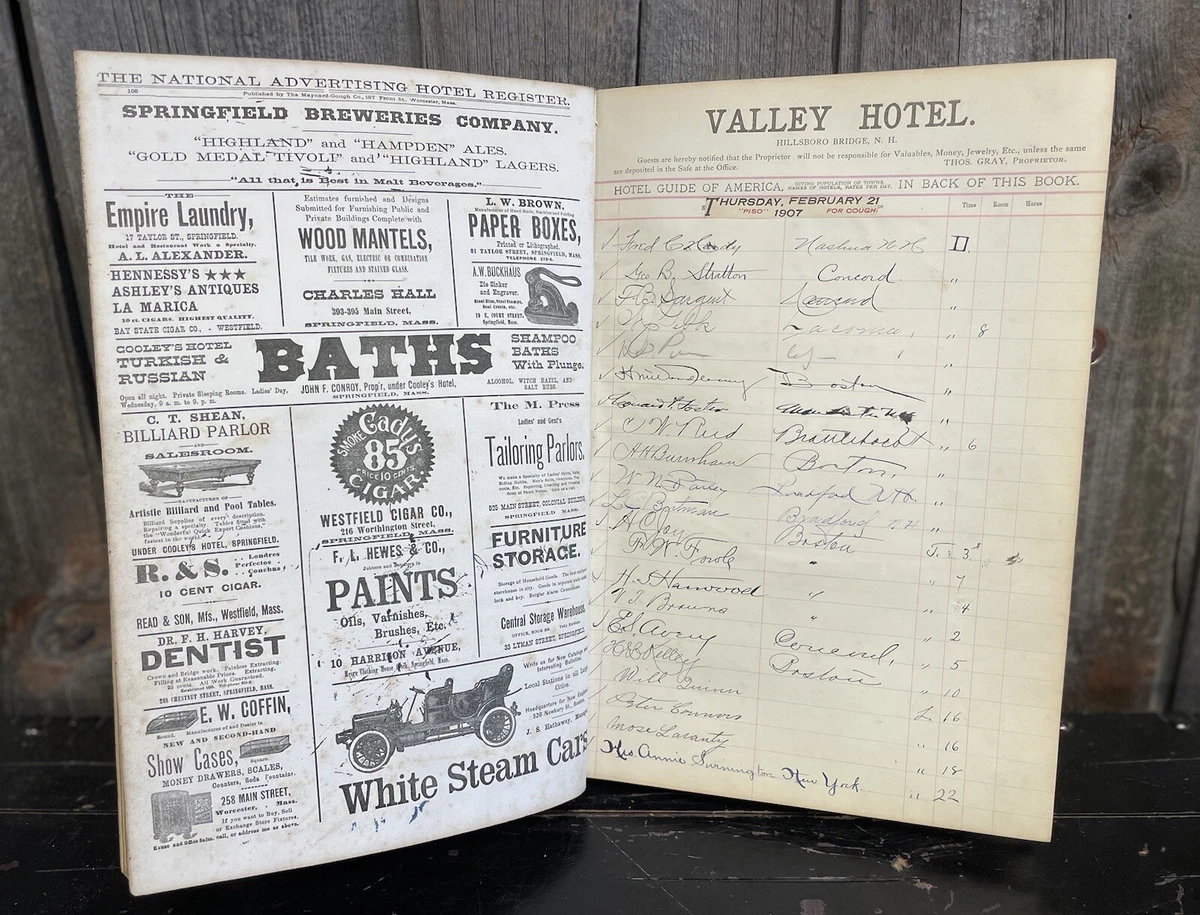 THE NATIONAL ADVERTISING HOTEL REGISTER.
108
Published by The Maynard-Gough Co., 187 Front St., Worcester, Mass.
SPRINGFIELD BREWERIES COMPANY.
"HIGHLAND" and "HAMPDEN" ALES.
"GOLD MEDAL TIVOLI" and "HIGHLAND" LAGERS.
"All that is Best in Malt Beverages."
THE
Empire Laundry,
17 TAYLOR ST., SPRINGFIELD.
Hotel and Restaurant Work a Specialty.
A. L. ALEXANDER.
HENNESSY'S ★★★
ASHLEY'S ANTIQUES
LA MARICA
10 ct. CIGARS. HIGHEST QUALITY.
BAY STATE CIGAR CO., - WESTFIELD.
Estimates furnished and Designs
Submitted for Furnishing Public and
Private Buildings Complete with
WOOD MANTELS,
TILE WORK, GAS, ELECTRIC OR COMBINATION
FIXTURES AND STAINED GLASS.
CHARLES HALL
393-395 Main Street,
SPRINGFIELD, MASS.
L. W. BROWN,
PAPER BOXES,
Printed or Lithographed.
81 TAYLOR STREET, SPRINGFIELD, MASS.
A.W. BUCKHAUS
Die Sinker
and Engraver.
Springfield, Mass.
COOLEY'S HOTEL
TURKISH &
RUSSIAN
BATHS
SHAMPOO
BATHS
With Plunge.
Open all night. Private Sleeping Rooms. Ladies' Day,
Wednesday, 9 a. m. to 9. p. m.
JOHN F. CONROY, Prop'r, under Cooley's Hotel,
SPRINGFIELD, MASS.
ALCOHOL, WITCH HAZEL, AND
SALT RUBS.
C. T. SHEAN,
BILLIARD PARLOR
AND
SALESROOM.
MANUFACTURER OF
Artistic Billiard and Pool Tables.
Billiard Supplies of every description.
Repairing a specialty. Tables fitted with
the "Wonderful Quick Expert Cushions,"
fastest in the world.
UNDER COOLEY'S HOTEL, SPRINGFIELD.
R. & S.
Londres
Perfectos
Conchas
10 CENT CIGAR.
READ & SON, Mfs., Westfield, Mass.
DR. F. H. HARVEY,
DENTIST
Crown and Bridge work. Painless Extracting.
Filling at Reasonable Prices. Extracting,
25 cents. All Work Guaranteed.
288 CHESTNUT STREET, SPRINGFIELD, MASS.
E. W. COFFIN,
Round.
Manufacturer of and Dealer in
NEW AND SECOND-HAND
Show Cases,
Square.
MONEY DRAWERS, SCALES,
Counters, Soda Fountains.
258 MAIN STREET,
Worcester, - Mass.
If you want to Buy, Sell
or Exchange Store Fixtures,
call, or address me as above.
SMOKE Cady's
85
PRICE 10 CENTS
CIGAR
WESTFIELD CIGAR CO.,
216 Worthington Street,
SPRINGFIELD, MASS.
F. L. HEWES & CO.,
PAINTS
Oils, Varnishes,
Brushes, Etc.
10 HARRISON AVENUE,
Springfield, Mass.
The M. Press
Ladies' and Gent's
Tailoring Parlors.
525 MAIN STREET, COLONIAL BUILDING
SPRINGFIELD, MASS.
FURNITURE
STORAGE.
Central Storage Warehouse
33 LYMAN STREET, SPRINGFIELD.
Write us for New Catalogs and
Interesting Bulletins.
Local Stations in all Large
Cities.
Headquarters for New England
320 Newbury St., Boston
J. S. Hathaway,
White Steam Cars
VALLEY HOTEL.
HILLSBORO BRIDGE, N. H.
Guests are hereby notified that the Proprietor will not be responsible for Valuables, Money, Jewelry, Etc., unless the same
are deposited in the Safe at the Office.
THOS. GRAY, PROPRIETOR.
HOTEL GUIDE OF AMERICA, GIVING POPULATION OF TOWNS, NAMES OF HOTELS, RATES PER DAY, IN BACK OF THIS BOOK.
THURSDAY, FEBRUARY 21
"PISO" 1907 FOR COUGH
Time Room Horse
Nashua N H D
Geo B. Stratton Concord "
F B Sargent Concord "
Tacoma, " 8
Boston "
C W Reid Brattleboro " 6
H H Burnham Boston, "
Bradford N H "
Bradford N H "
Boston
F. W. Fowle " T. 3
H. S. Harwood " " 7
" 4
E S Avery Concord, " 2
Kelley Boston " 5
Will Quinn " 10
Peter Connors L 16
Mose " 16
" 18
Mrs. Annie New York. " 22